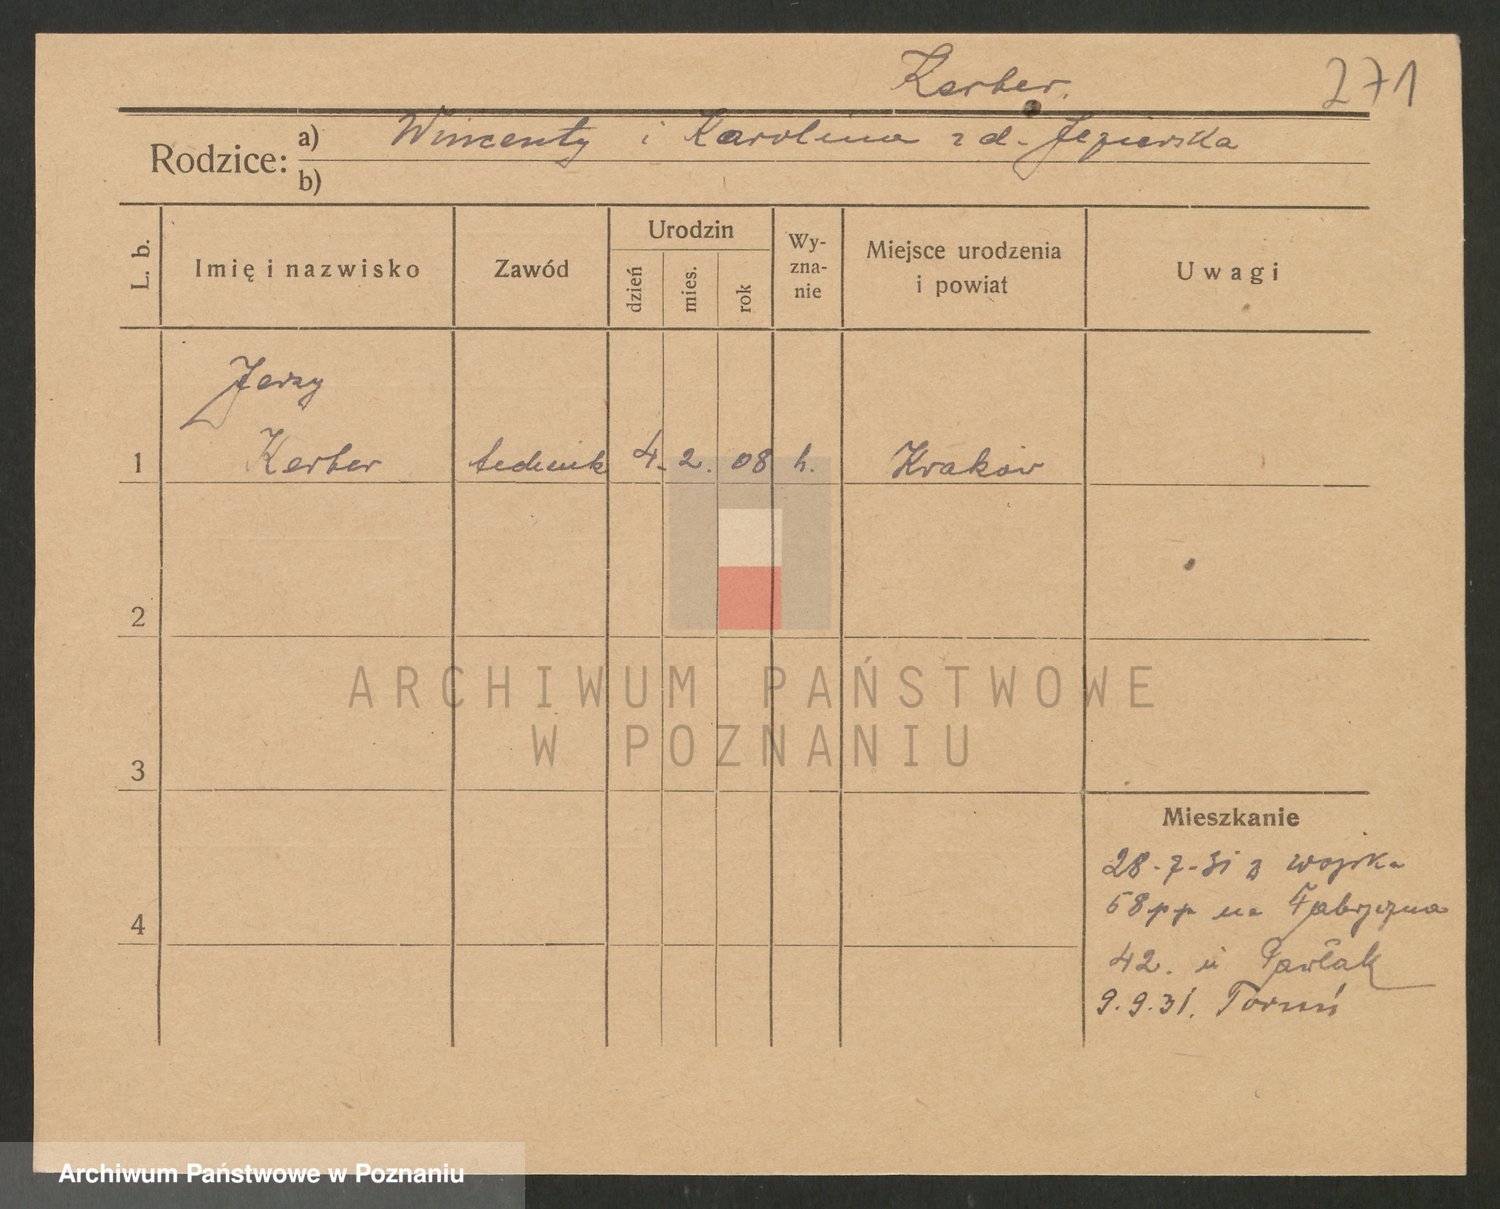 Kerber.
271
Rodzice: a) Wincenty i Karolina z d. Jezierska
b)
L. b.
Imię i nazwisko
Zawód
Urodzin
dzień
mies.
rok
Wy-
zna-
nie
Miejsce urodzenia
i powiat
Uwagi
Jerzy
1 Kerber technik 4. 2. 08 k. Kraków
2
ARCHIWUM PAŃSTWOWE
W POZNANIU
3
Mieszkanie
28-7-31 z wojska
58 pp na Fabryczna
4
42. u Pawlak
9.9.31. Toruń
Archiwum Państwowe w Poznaniu